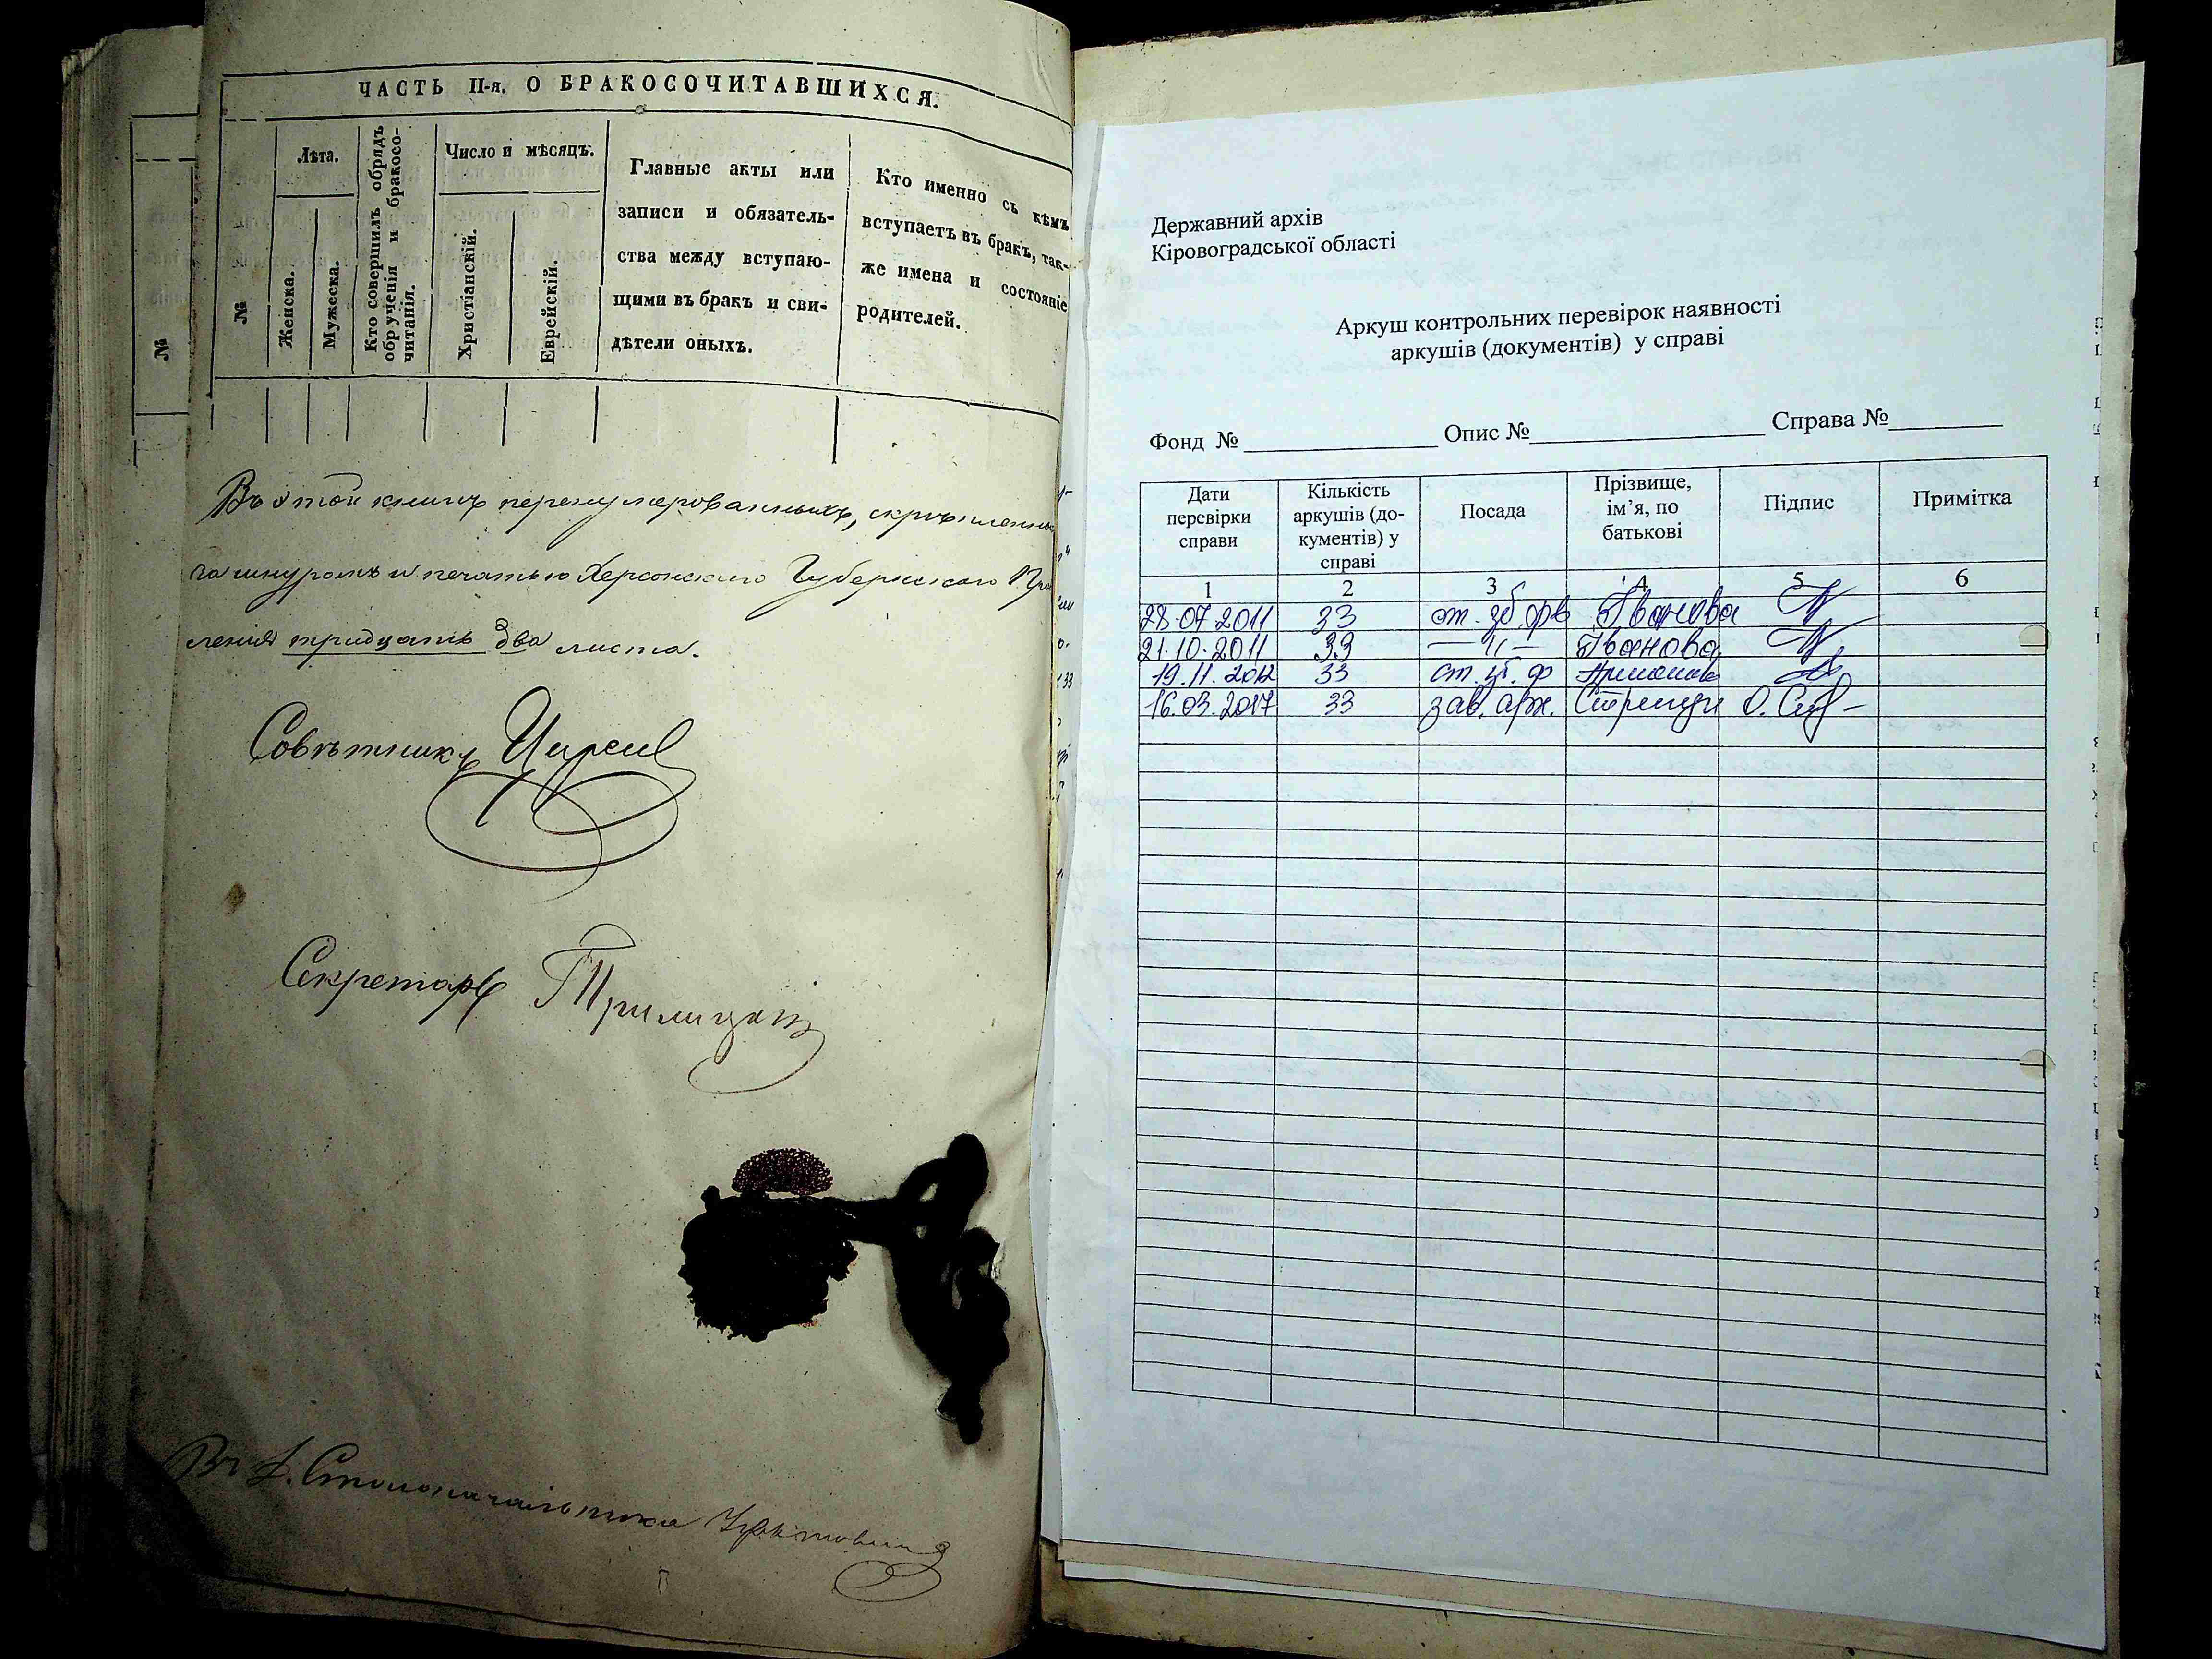 ЧАСТЬ II-я. О БРАКОСОЧИТАВШИХСЯ.
№
№
Лѣта.
Женска.
Мужеска.
Кто совершилъ обрядъ
обрученія и бракосо-
читанія.
Число и мѣсяцъ.
Христіанскій.
Еврейскій.
Главные акты или
записи и обязатель-
ства между вступаю-
щими въ бракъ и сви-
дѣтели оныхъ.
Кто именно съ кѣмъ
вступаетъ въ бракъ, так-
же имена и состояніе
родителей.
Въ этой книгѣ перенумерованныхъ, скрѣпленны
за шнуромъ и печатью Херсонскаго Губернскаго Пра
ленія тридцать два листа.
Совѣтникъ
Секретарь
Столоначальника
Державний архів
Кіровоградської області
Аркуш контрольних перевірок наявності
аркушів (документів) у справі
Фонд № Опис № Справа №
Дати
перевірки
справи
Кількість
аркушів (до-
кументів) у
справі
Посада
Прізвище,
ім’я, по
батькові
Підпис
Примітка
1 2 3 4 5 6
28.07.2011 33 Іванова
21.10.2011 33 — " — Іванова
19.11.2012 33
16.03.2017 33 зав. арх.